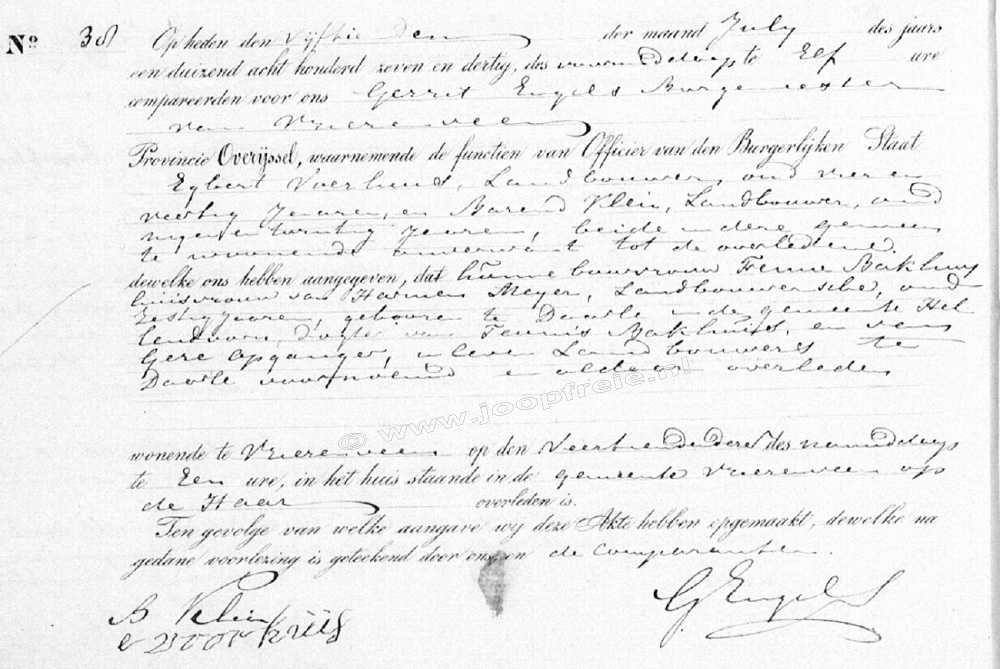 Nº 38 Op heden den Vijftienden der maand July des jaars
een duizend acht honderd zeven en dertig, des voormiddags te Elf ure
compareerden voor ons Gerrit Engels Burgemeester
van Vriezenveen
Provincie Overijssel, waarnemende de functien van Officier van den Burgerlijken Staat
Egbert Voorhuis, Landbouwer, oud vier en
veertig Jaaren, en Barend Klein, Landbouwer, oud
negen en twintig Jaaren, beide in dese gemeen
te woonende onverwant tot de overledene
dewelke ons hebben aangegeven, dat hunne buurvrouw Fenne Bakhuis
huisvrouw van Harmen Meyer, Landbouwersche, oud
Zestig Jaaren, gebooren te Daarle in de gemeente Hel
lendoorn, dogter van Teunis Bakhuis, en van
Gere Opganger, in leven Landbouwers te
Daarle voornoemd en aldaar overleden
© www.joopfreie.nl
wonende te Vriezenveen op den Veertienden dezer des namiddags
te Een ure, in het huis staande in de gemeente Vriezenveen op
de Haar overleden is.
Ten gevolge van welke aangave wy deze Akte hebben opgemaakt, dewelke na
gedane voorlezing is geteekend door ons en de Comparanten.
B Klein G Engels
e voorhuis